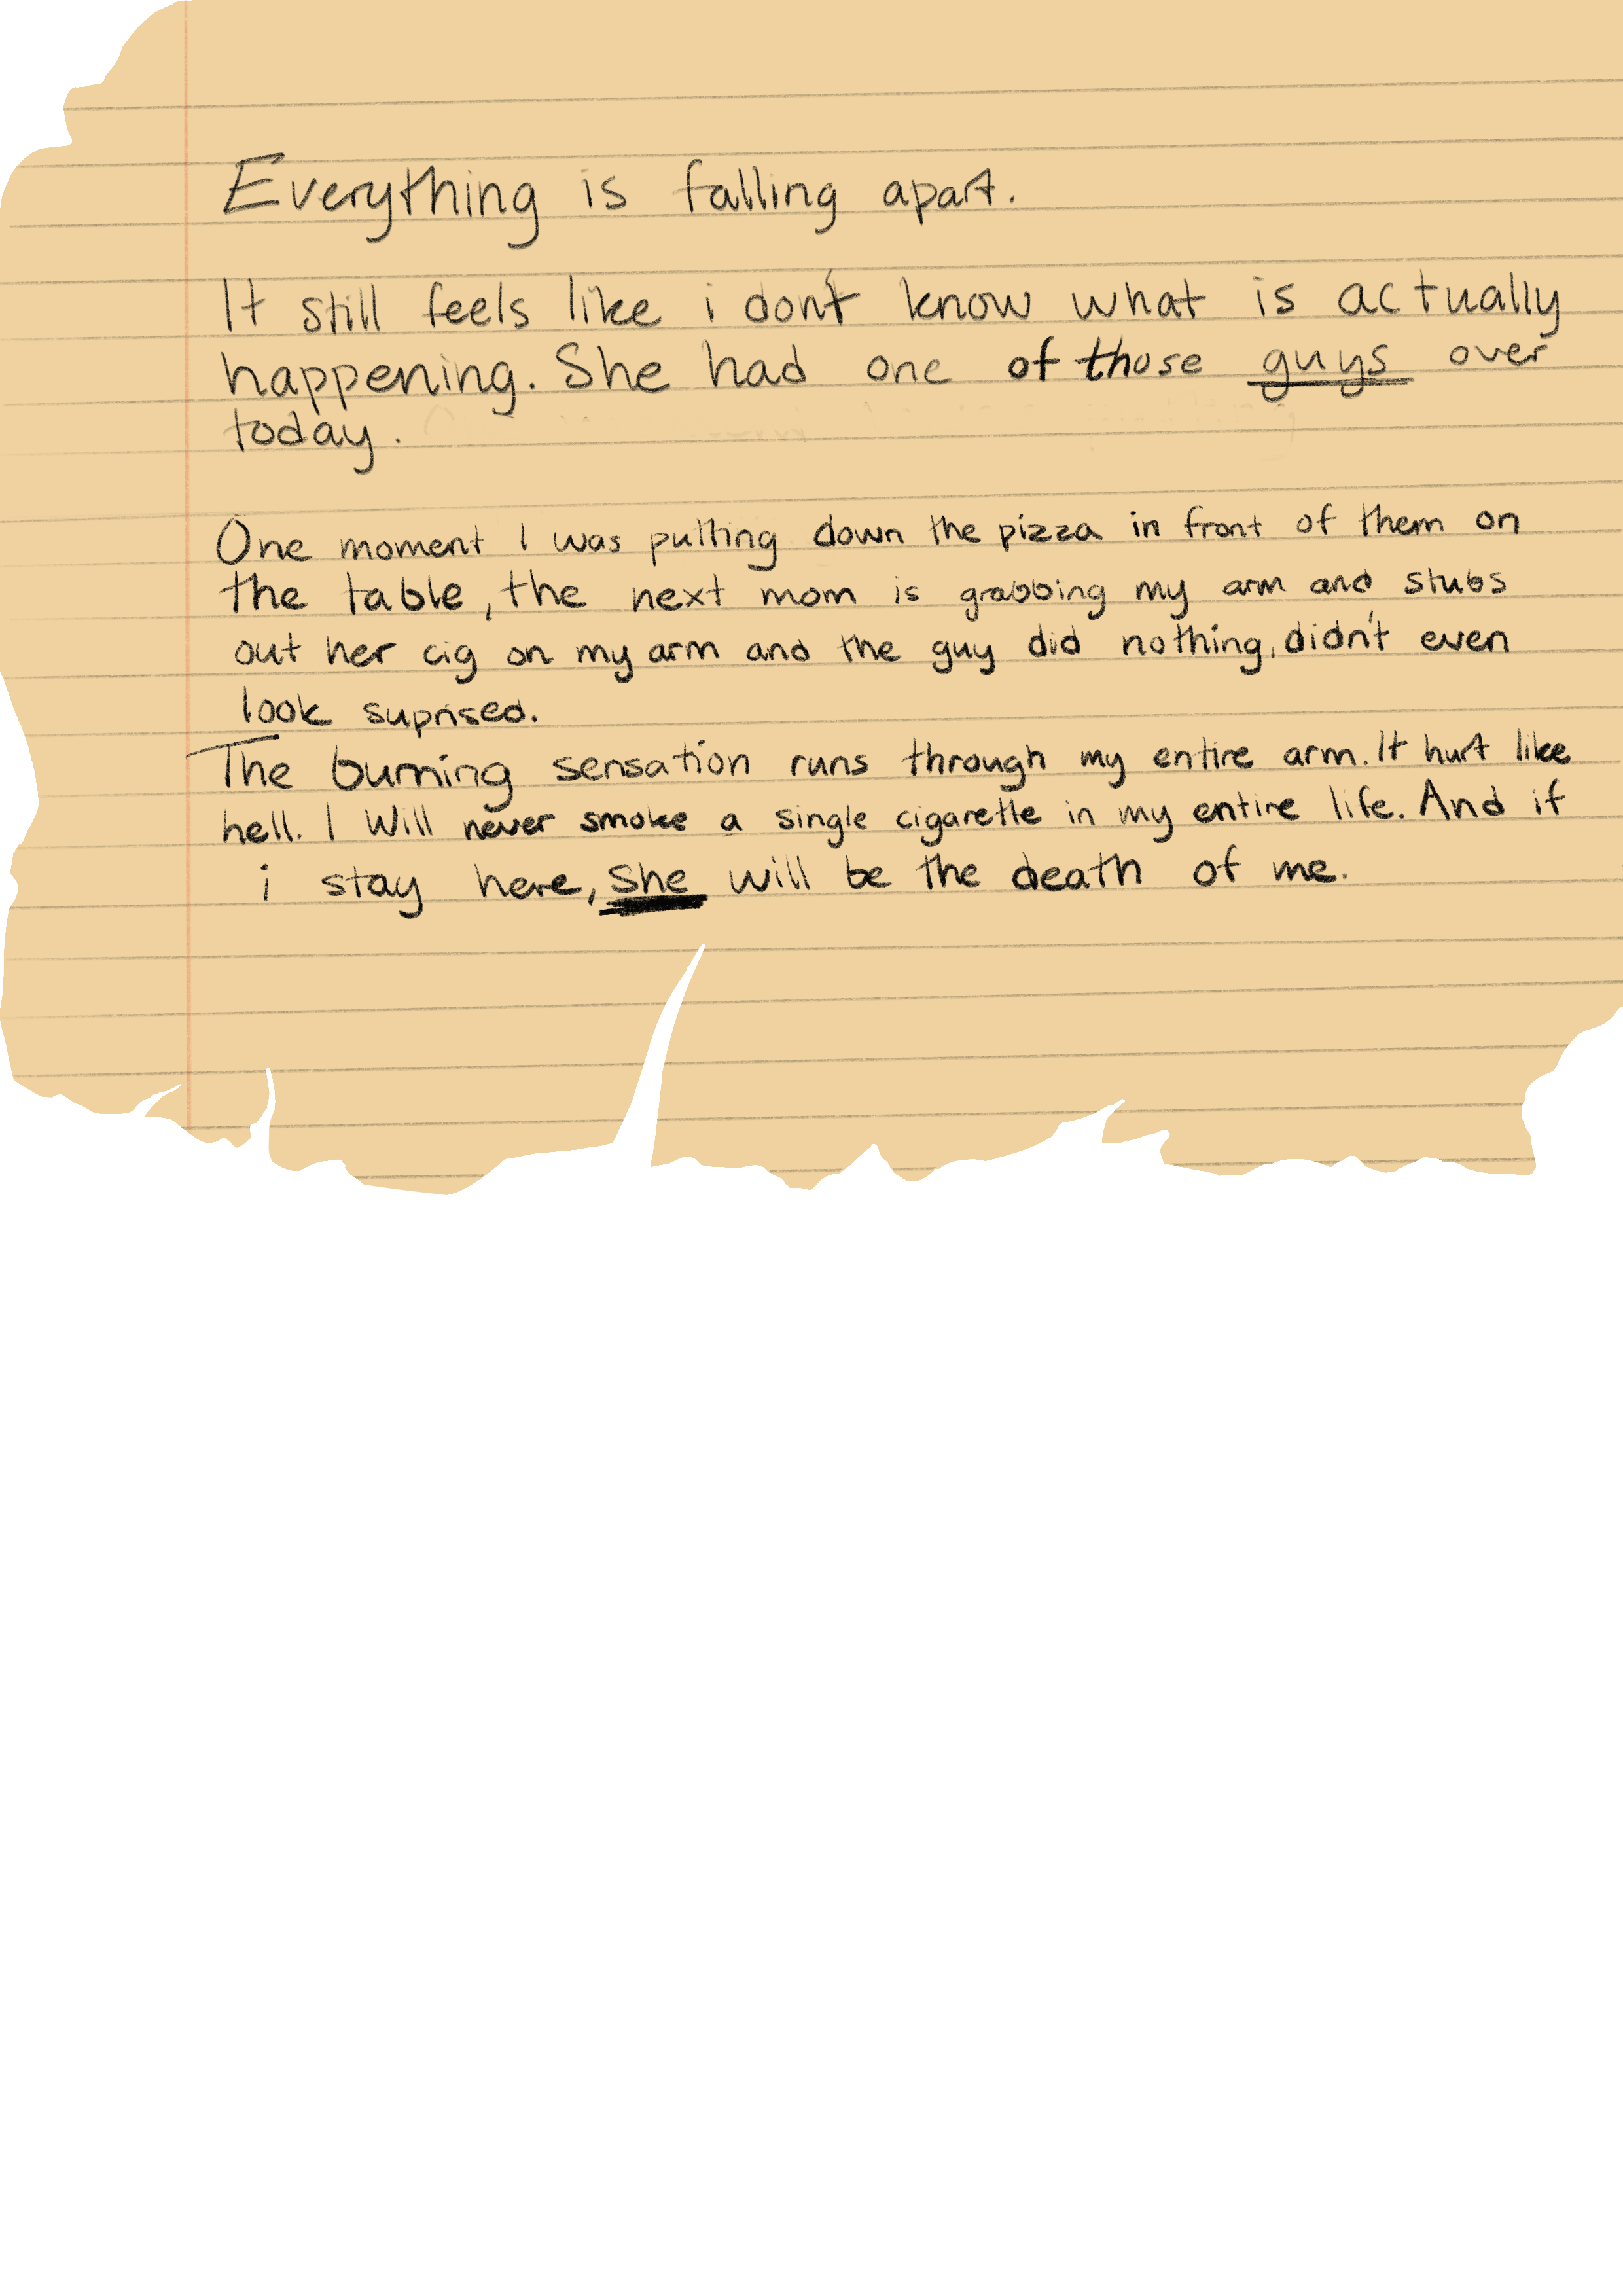 Everything is falling apart.
It still feels like i don't know what is actually
happening. She had one of those guys over
today.
One moment I was putting down the pizza in front of them on
the table, the next mom is grabbing my arm and stubs
out her cig on my arm and the guy did nothing, didn't even
look suprised.
The burning sensation runs through my entire arm. It hurt like
hell. I Will never smoke a single cigarette in my entire life. And if
i stay here, she will be the death of me.